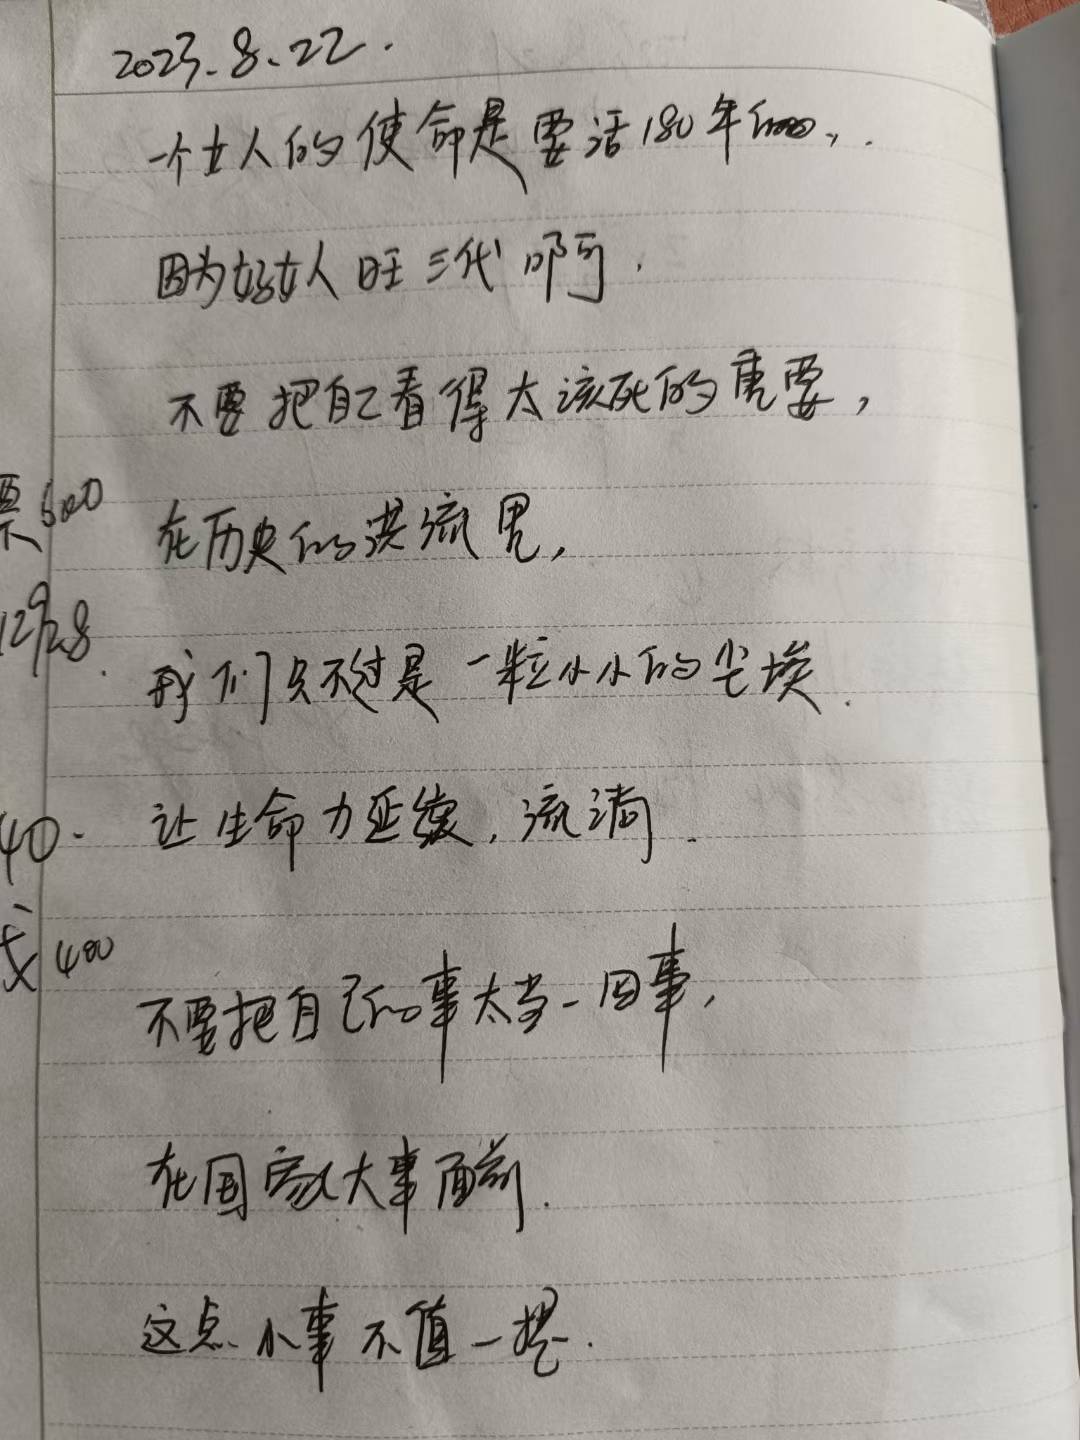 2023.8.22.
一个女人的使命是要活180年的,.
因为好女人旺三代啊.
不要把自己看得太该死的重要,
在历史的洪流里,
我们只不过是一粒小小的尘埃.
让生命力延续,流淌.
不要把自己的事太当一回事,
在国家大事面前.
这点小事不值一提.
票600
40.
400